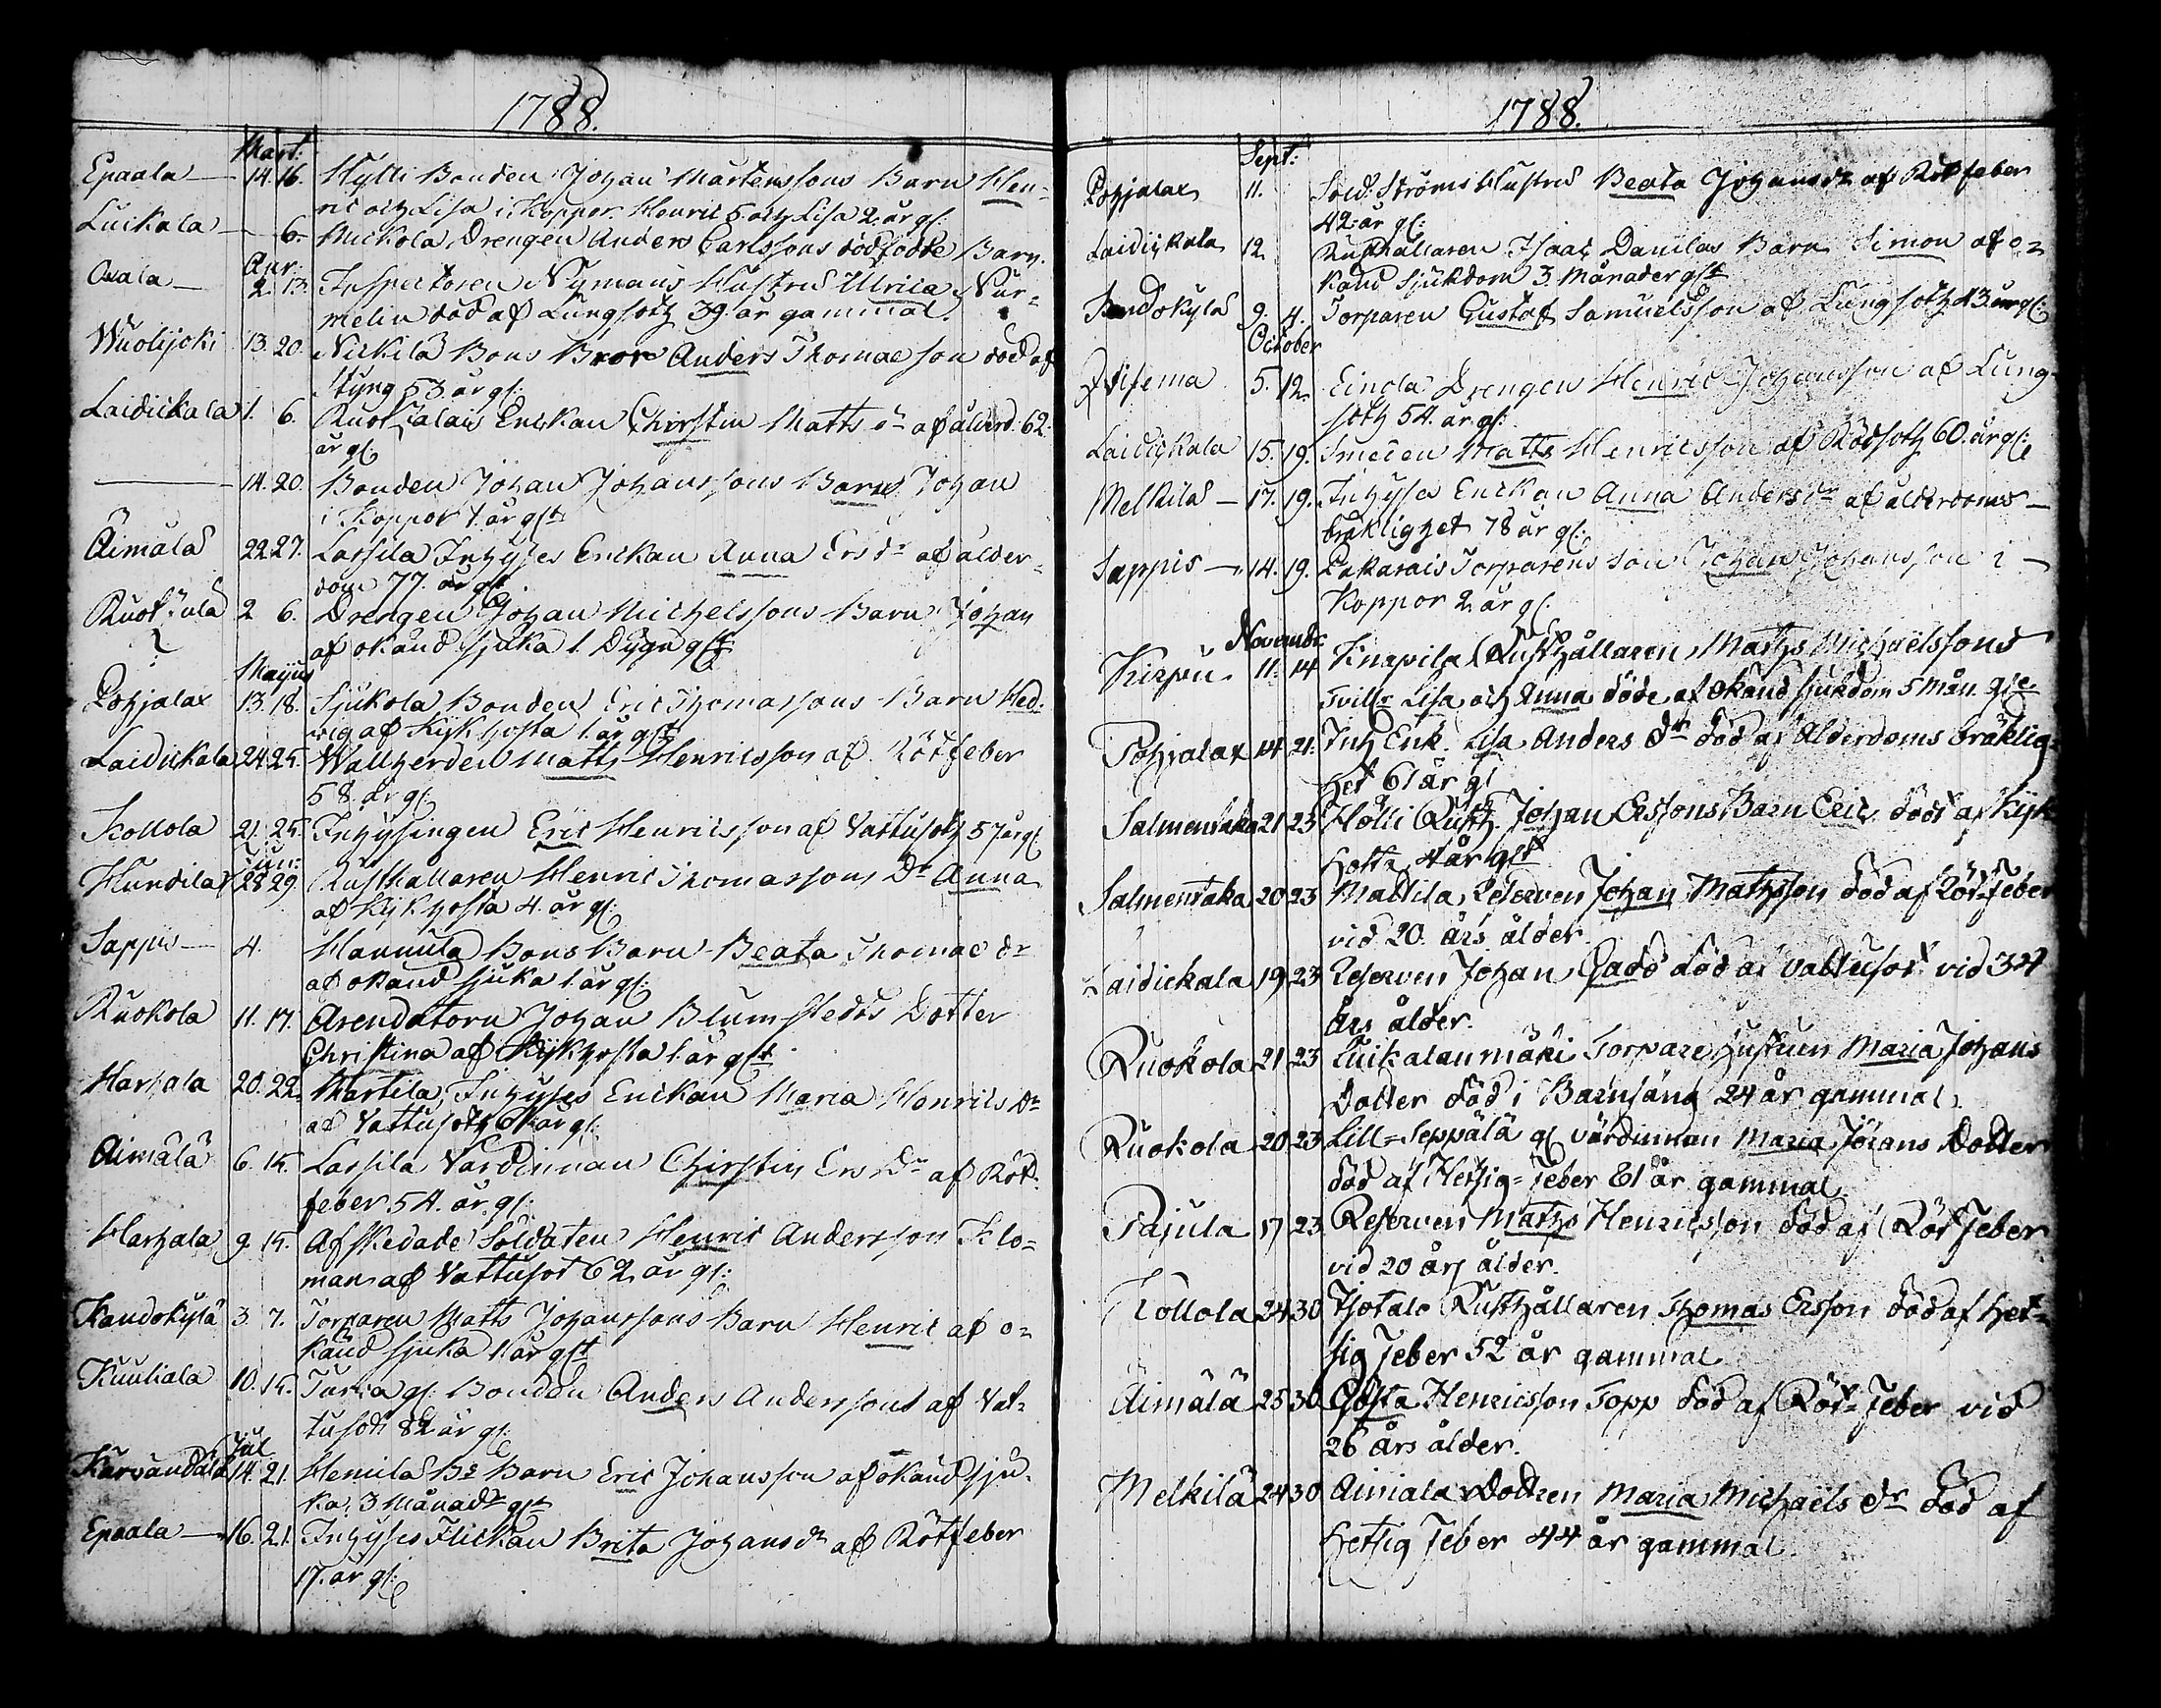 1788.
Mart:
Epaala — 14. 16. Hylli Bonden Johan Mårtenssons Barn Hen-
ric och Lisa i Koppor. Henric 5 och Lisa 2. år gl:
Luikala — 6. Mickola Drengen Anders Carlssons dödfödde Barn.
Apr.
Onala — 2. 13. Inspectoren Nymans Hustru Ulrica Nur-
melin död af Lungsoth 39. år gammal.
Wuolijoki 13. 20. Nickilä Bons Bror Anders Thomae son död af
styng 53 år gl:
Laidickala 1. 6. Enckan Chirstin Matts dr af ålderd. 62.
år gl.
— 14. 20. Bonden Johan Johanssons Barn Johan
i Koppor 1. år glt
Äimälä 22. 27. Lassila Inhyses Enckan Anna Ers dr af ålder-
dom 77. år gl.
2 6. Drengen Johan Michelssons Barn Johan
af okänd sjuka 1. Dygn glt
Majus
Pohjalax 13. 18. Sjukola Bonden Eric Thomassons Barn Hed-
vig af Kijkhosta 1. år glt
Laidickala 24. 25. Wallherden Matts Henricsson af Rötfeber
58. år gl.
Kollola 21. 25. Inhysingen Eric Henricsson af Vattusoth 57 år gl
Jun:
Hundila 28 29 Rusthållaren Henric Thomassons Dr Anna
af Kijkhosta 4. år gl:
Sappis — 4. Hannula Bons Barn Beata Thomae dr
af okänd sjuka 1. år gl:
Ruokola 11. 17. Arendatorn Johan Blumstedts Dotter
Christina af Kijkhosta 1. år glt
Harhala 20. 22. Martila Inhyses Enckan Maria Henrics Dr
af Vattusoth år gl:
Äimälä 6. 15. Lassila Värdinnan Chirstin Ers Dr af Röt-
feber 54. år gl:
Harhala 9. 15. Afskedade Soldaten Henric Andersson Klo-
man af Vattusot 62 år gl:
Kandokylä 3 7. Torparen Matts Johanssons Barn Henric af o-
känd sjuka 1. år glt
Kuuliala 10. 15. Turia gl: Bonden Anders Andersson af Vat-
tusoth 82 år gl:
Jul
Karvandala 14. 21. Hemilä Bs Barn Eric Johansson af okänd sju-
ka, 3 Månadr glt
Epaala — 16. 21. Inhyses Flickan Brita Johans dr af Rötfeber
17. år gl:
1788.
Sept:
Pohjalax 11. Sold: Ströms Hustru Beata Johans dr af Rötfeber
42: år gl:
Laidickala 12. Rusthållaren Isaac Danilas Barn Simon af o-
känd Sjukdom 3. Månader glt
Kandokylä 9. 4. Torparen Gustaf Samuelsson af Lungsoth 43. år gl:
October
5. 12. Einola Drengen Henric Johansson af Lung-
soth 54. år gl:
Laidickala 15. 19. Smeden Matts Henricsson af Rödsoth 60. år gl:
Melkila — 17. 19. Inhyses Enckan Anna Anders dr af ålderdoms —
bräklighet 78 år gl:
Sappis — 14. 19. Pakarais Torparens son Johan Johansson i —
Koppor 2. år gl.
Novembr
11. 14 Knapila Rusthållaren Maths Michaëlssons
Tvillr Lisa och Anna döde af okänd sjukdom 5 Mån. gle
Pohjalax 14 21. Inh Enk. Lisa Anders dr död af Ålderdoms bräklig-
het 61 år gl
Salmentaka 21 23 Hölli Rusth. Johan Ersons Barn Eric död af Kijk
hosta 4 år glt
Salmentaka 20 23 Mattila Reserven Johan Mathsson död af Röt-feber
vid 20. års ålder.
Laidickala 19 23 Reserven Johan Gadd död af Vattusot vid 34
års ålder.
Ruokola 21 23 Luikalanmäki Torpare hustrun Maria Johans
Dotter död i Barnsäng 24 år gammal.
Ruokola 20 23 Lill-Seppälä gl värdinnan Maria Jörans Dotter
död af Hetsig-Feber 81 år gammal.
Pajula 17 23 Reserven Maths Henricsson död af Röt Feber
vid 20 års ålder.
Kollola 24 30 Isotalo Rusthållaren Thomas Ersson död af het-
sig Feber 52 år gammal
Äimälä 25 30 Gösta Henricsson Topp död af Röt-Feber vid
26 års ålder.
Melkilä 24 30 Aimala Dottren Maria Michaëls dr död af
hetsig Feber 44 år gammal.